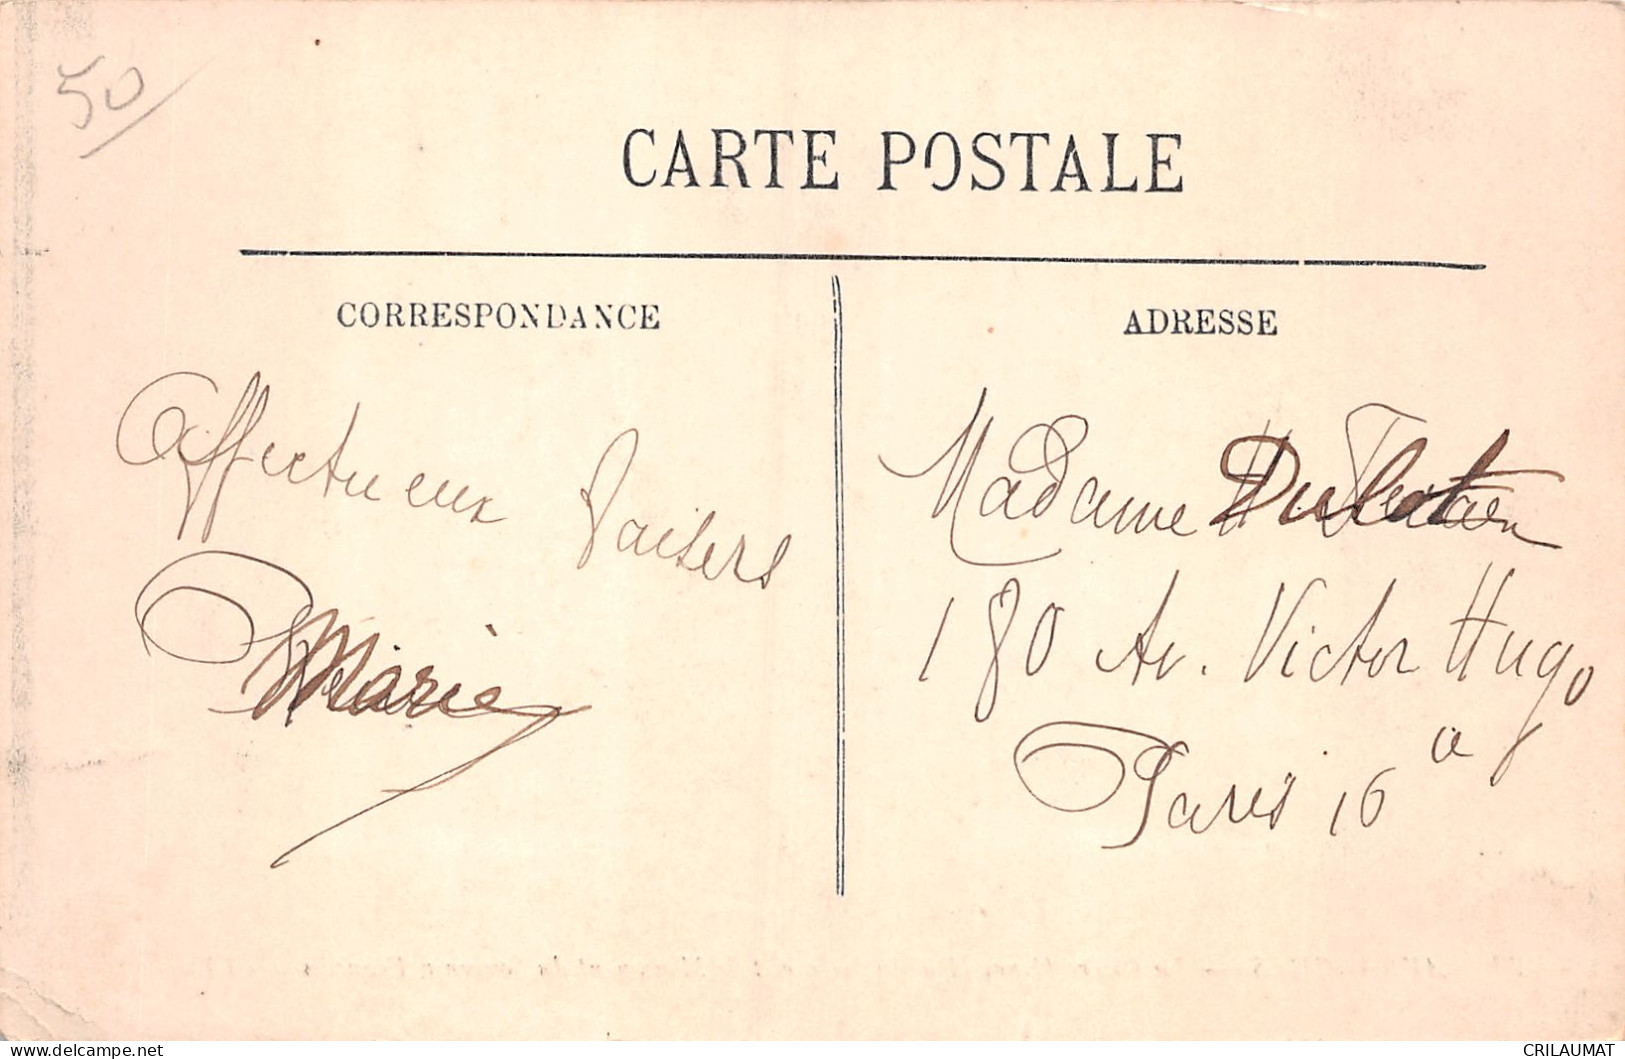 50
CARTE POSTALE
CORRESPONDANCE
ADRESSE
Affectueux baisers
Marie
Madame
180 Av. Victor Hugo
Paris 16e
delcampe.net
CRILAUMAT